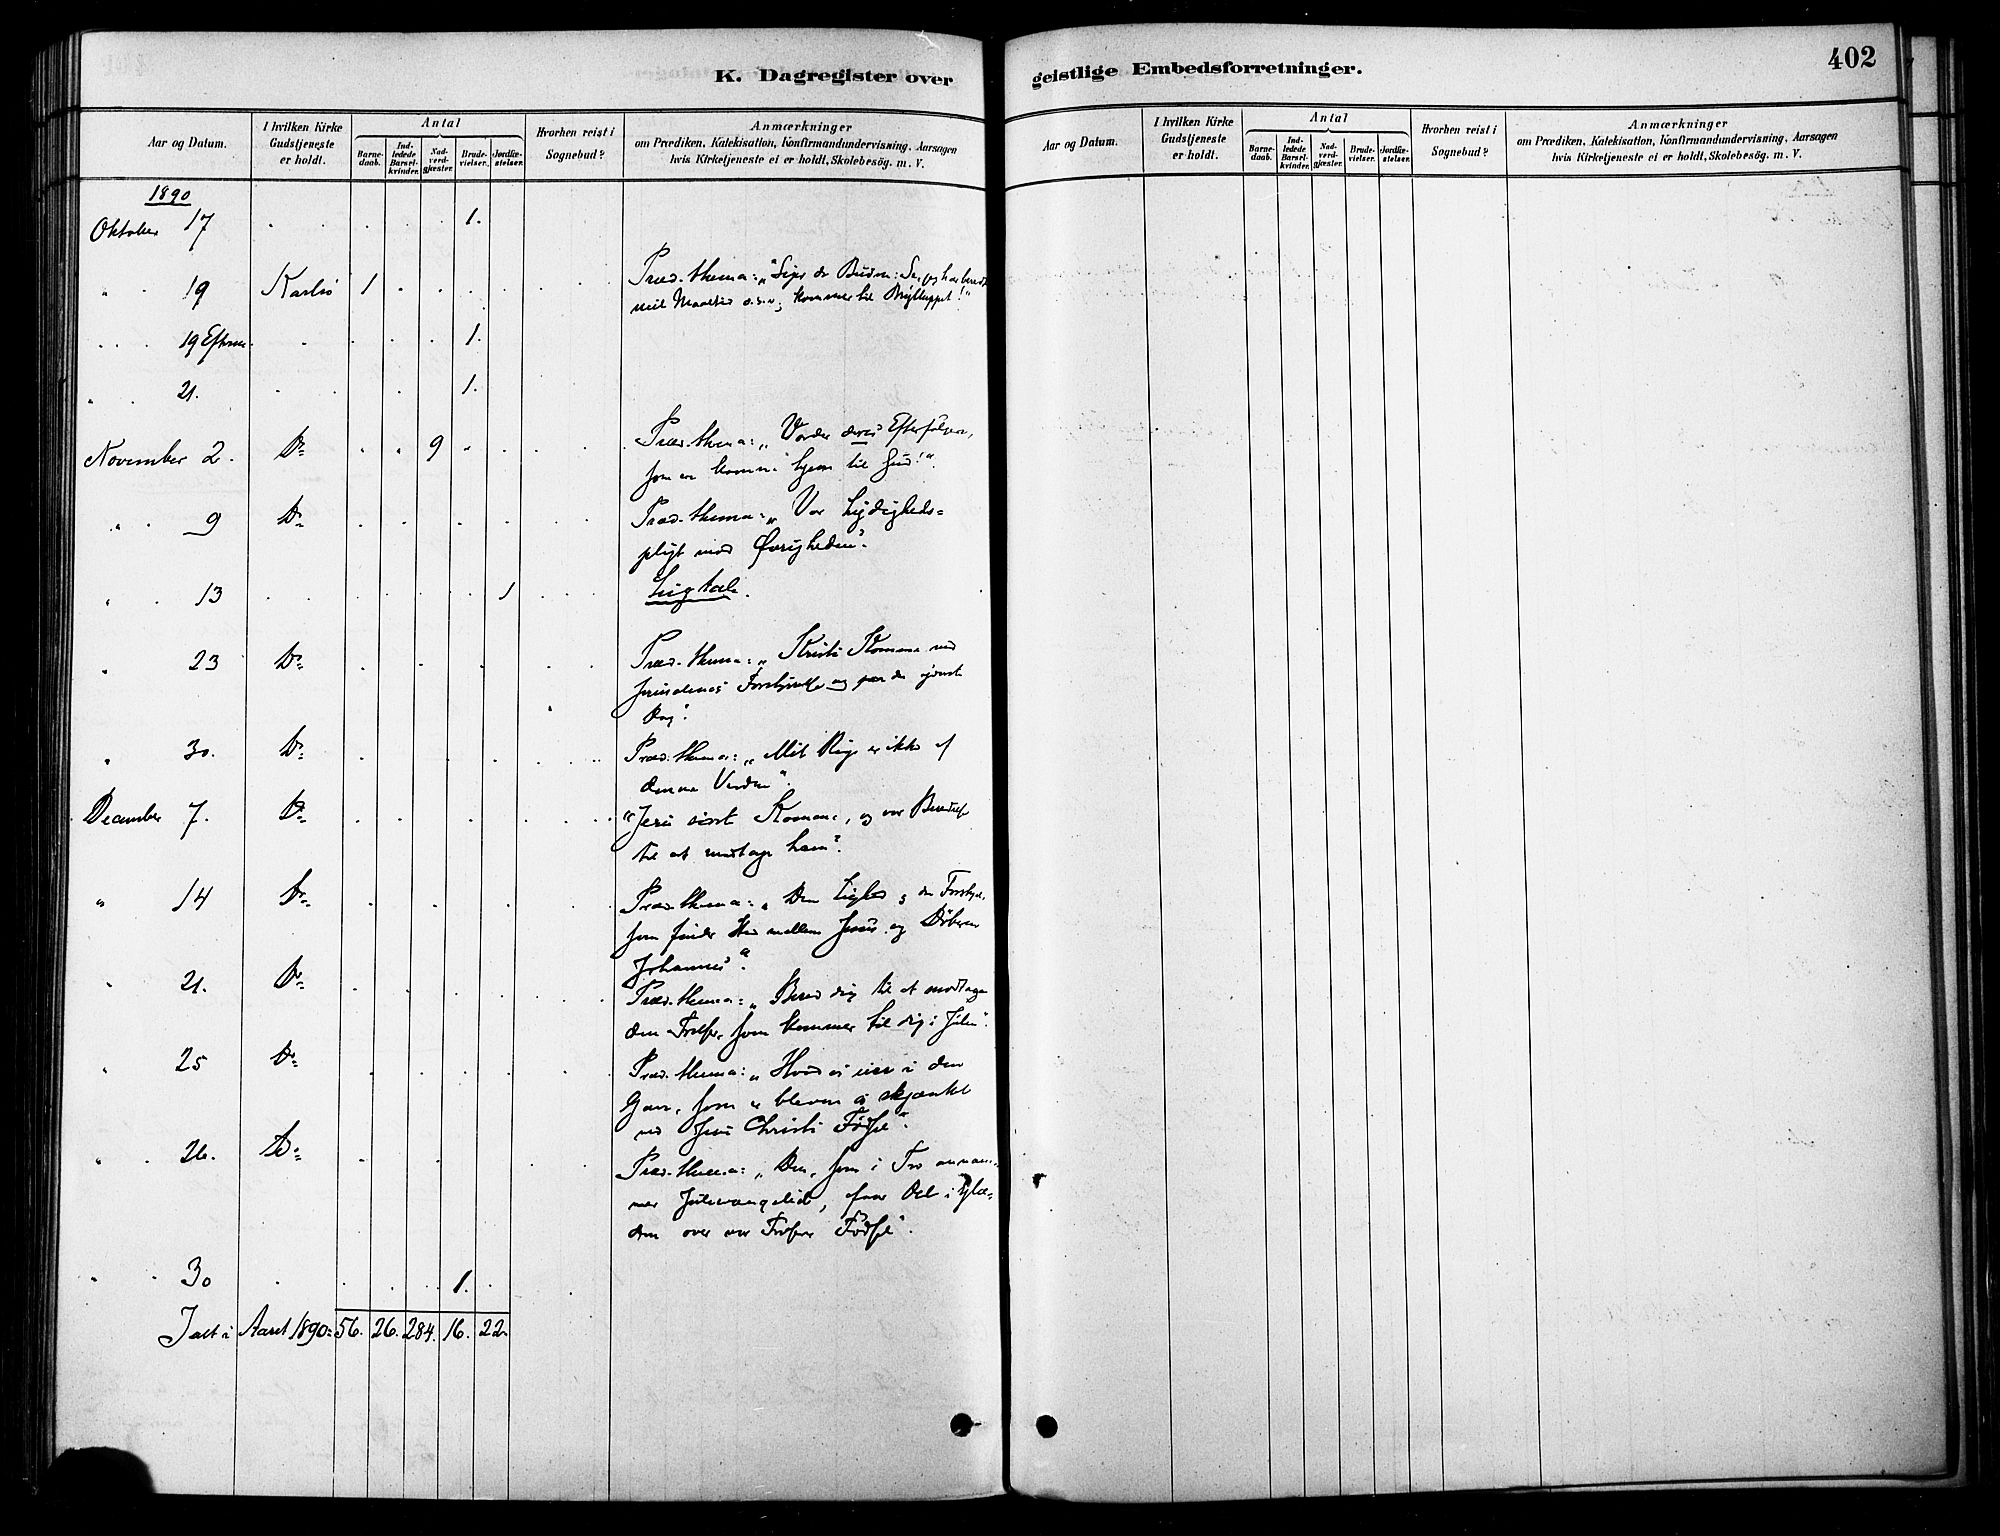 K. Dagregister over
Aar og Datum.
I hvilken Kirke Gudstjeneste er holdt.
Antal
Barne-daab.
Ind-ledede Barsel-kvinder.
Nad-verd-gjæster.
Brude-vielser.
Jordfæ-stelser.
Hvorhen reist i Sognebud?
Anmærkninger
om Prædiken, Katekisation, Konfirmandundervisning, Aarsagen
hvis Kirketjeneste ei er holdt, Skolebesög. m. V.
1890
Oktober 17 1.
" 19 Karlsö 1 Præd. thema: "Siger de Budne: Se, jeg har beredt
mit Maaltid o.s.v; kommer til Brylluppet!"
19 Efterm. 1.
" 21. 1.
November 2. Do 9 Præd. thema: "Vorder deres Efterfølgere,
som ere komne hjem til Gud!"
" 9 Do Præd. thema: "Vor Lydigheds=
pligt mod Øvrigheden".
" 13 1 Ligtale.
" 23 Do Præd. thema: "Kristi Komme ved
Jerusalems Forstyrrelse og paa den yderste
Dag".
" 30. Do Præd. thema: "Mit Rige er ikke af
denne Verden".
December 7. Do "Jesu sidste Komme, og vor Beredelse
til at modtage ham".
" 14 Do Præd. thema: "Den Lighed og den Forskjel,
som finder Sted mellem Jesus og Døberen
Johannes".
" 21. Do Præd. thema: "Bered dig til at modtage
den Frelser, som kommer til dig i Julen".
" 25 Do Præd. thema: "Hvad vi eier i den
Gave, som er bleven os skjænket
ved Jesu Christi Fødsel".
" 26. Do Præd. thema: "Den, som i Tro annam-
mer Juleevangeliet, faar Del i Glæ=
den over vor Frelsers Fødsel".
" 30 1.
Ialt i Aaret 1890: 56. 26. 284. 16. 22.
geistlige Embedsforretninger.
402
Aar og Datum.
I hvilken Kirke Gudstjeneste er holdt.
Antal
Barne-daab.
Ind-ledede Barsel-kvinder.
Nad-verd-gjæster.
Brude-vielser.
Jordfæ-stelser.
Hvorhen reist i Sognebud?
Anmærkninger
om Prædiken, Katekisation, Konfirmandundervisning, Aarsagen
hvis Kirketjeneste ei er holdt, Skolebesög. m. V.